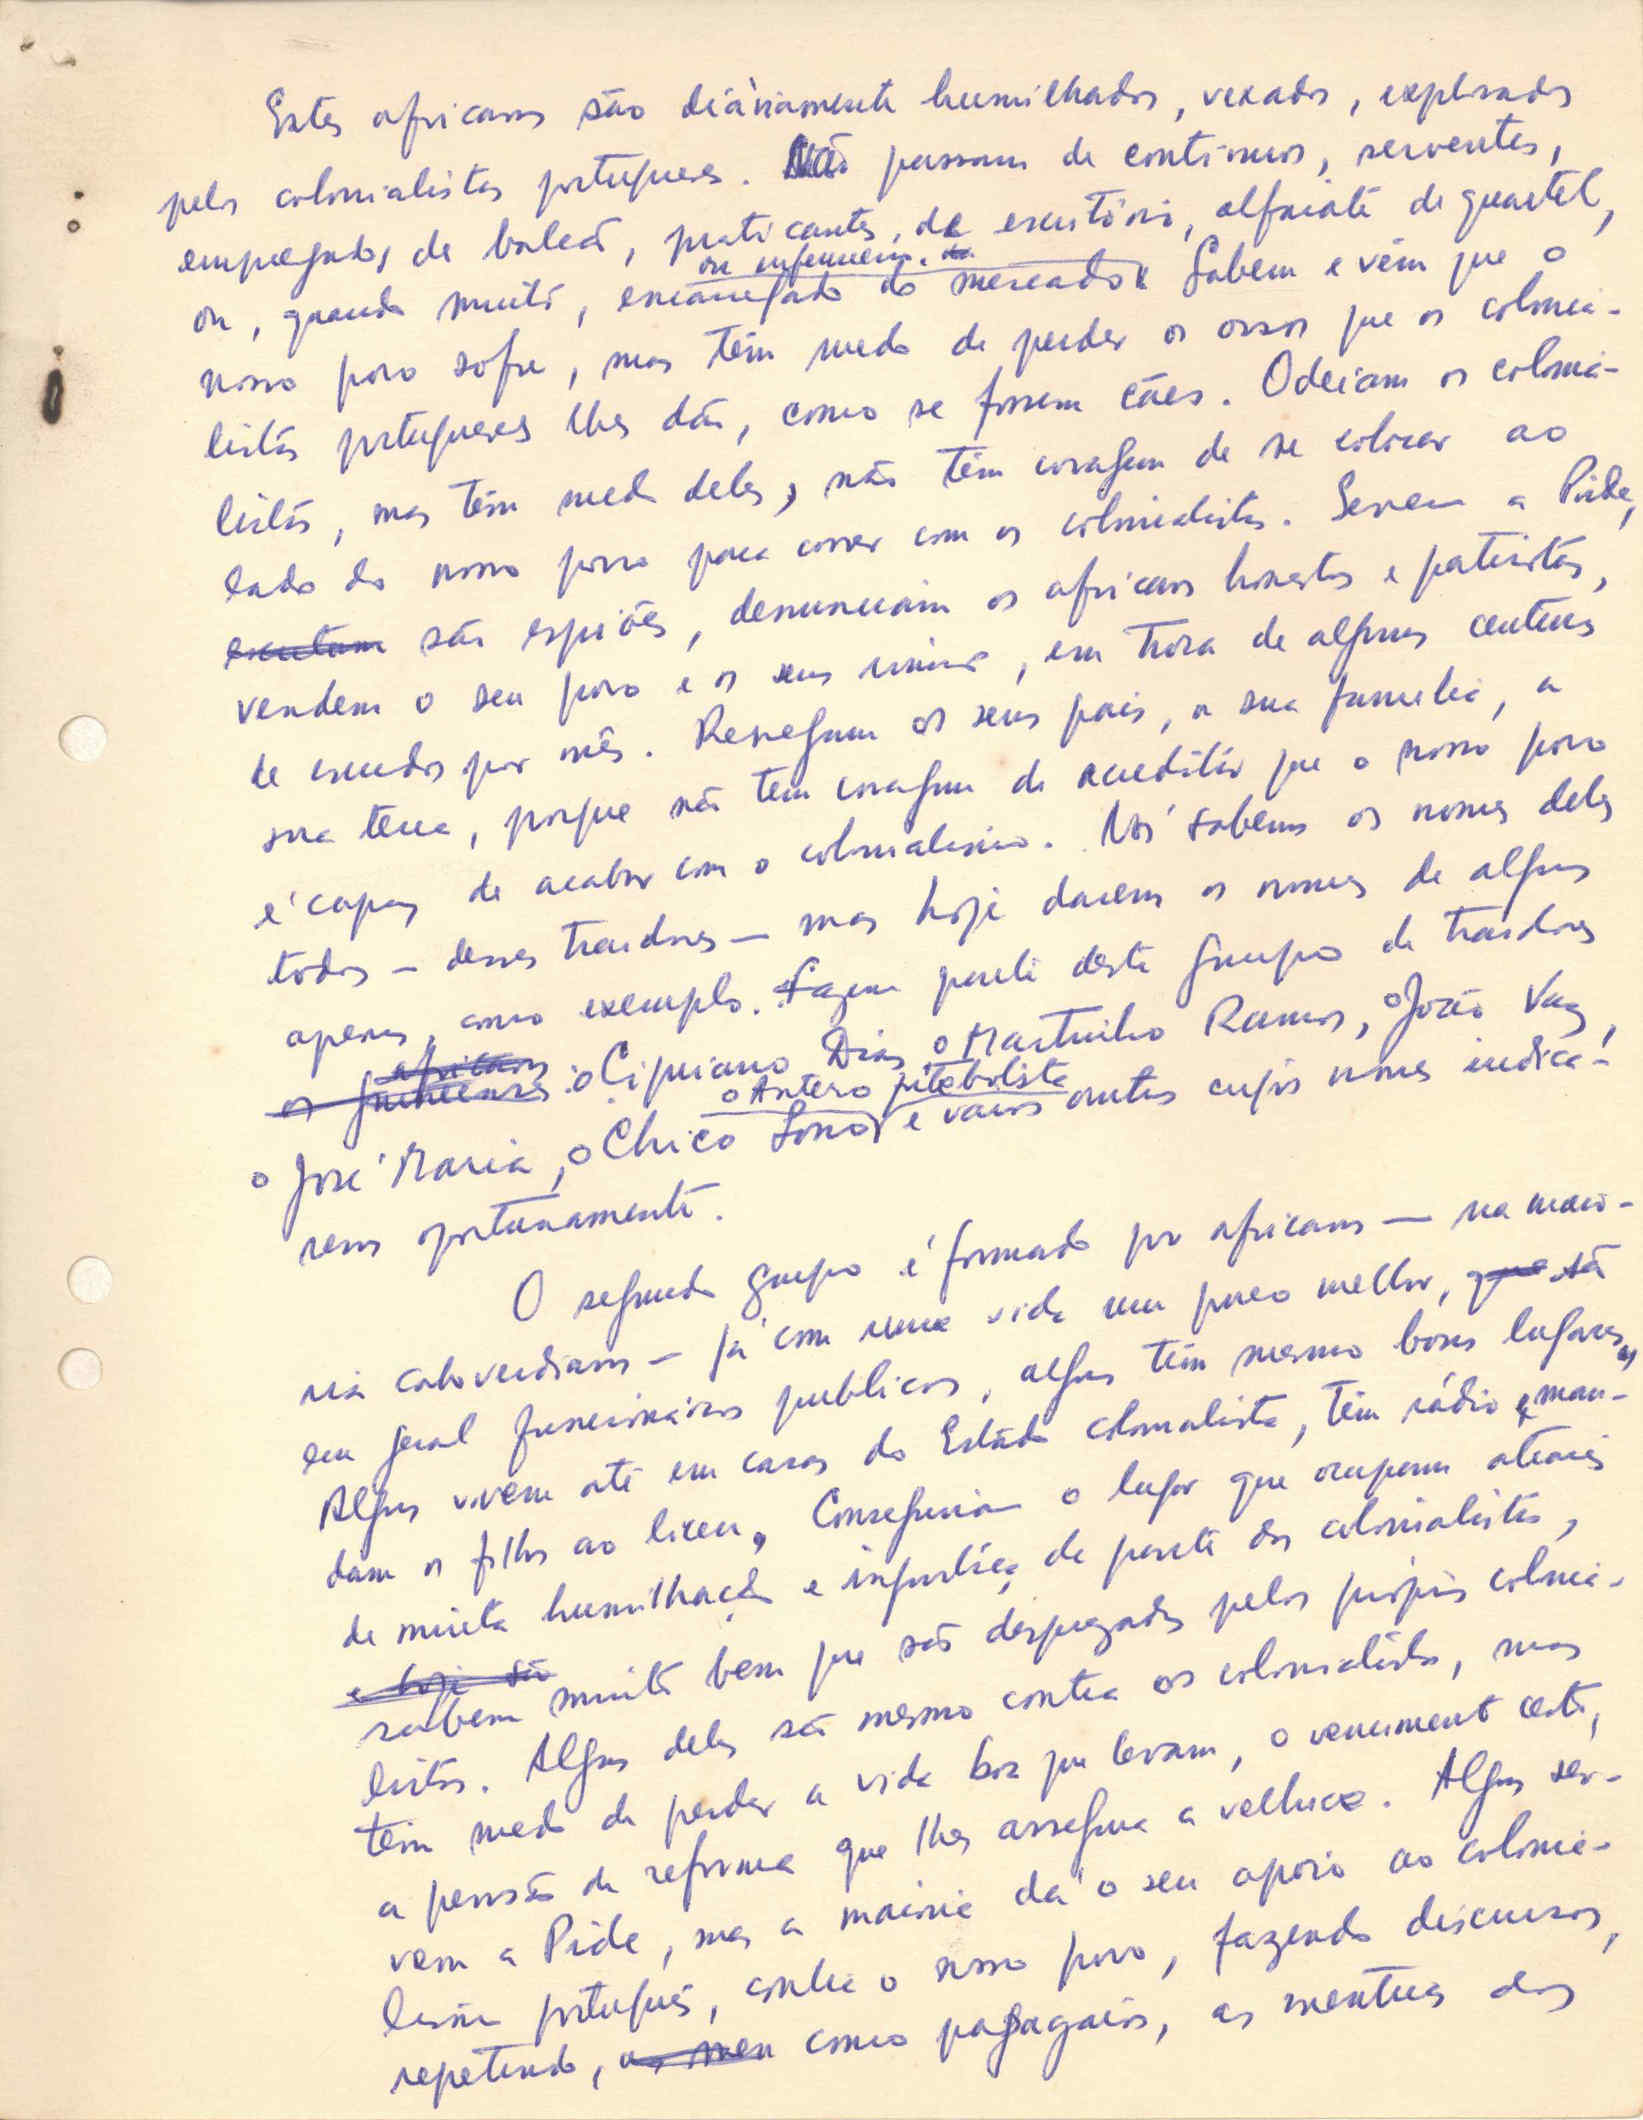 Estes africanos são diàriamente humilhados, vexados, explorados
pelos colonialistas portugueses. Não passam de contínuos, serventes,
empregados de balcão, praticantes, de escritório, alfaiate de quartel,
ou enfermeiro. do
ou, quando muito, encarregado do mercado. Sabem e vêm que o
nosso povo sofre, mas têm medo de perder os ossos que os colonia-
listas portugueses lhes dão, como se fossem cães. Odeiam os colonia-
listas, mas têm medo deles, não têm coragem de se colocar ao
lado do nosso povo para correr com os colonialistas. Servem a Pide,
escutam são espiões, denunciam os africanos honestos e patriotas,
vendem o seu povo e os seus irmãos, em troca de algumas centenas
de escudos por mês. Renegam os seus pais, a sua família, a
sua terra, porque não tem coragem de acreditar que o nosso povo
é capaz de acabar com o colonialismo. Nós sabemos os nomes deles
todos — desses traidores — mas hoje daremos os nomes de alguns
apenas, como exemplo. Fazem parte deste grupo de traidores
africanos
os guineenses : o Cipriano Dias, o Martinho Ramos, o João Vaz,
o Antero futebolista
o José Maria, o Chico Sono e vários outros cujos nomes indica-
remos oportunamente.
O segundo grupo é formado por africanos — na maio-
ria caboverdianos — já com uma vida um pouco melhor, que são
em geral funcionários publicos, alguns têm mesmo bons lugares,
Alguns vivem até em casas do Estado colonialista, têm rádio e man-
dam os filhos ao liceu. Conseguiram o lugar que ocupam através
de muita humilhação e injustiça de parte dos colonialistas,
e hoje são
sabem muito bem que são desprezados pelos próprios colonia-
listas. Alguns deles são mesmo contra os colonialistas, mas
têm medo de perder a vida boa que levam, o vencimento certo,
a pensão de reforma que lhes assegura a velhice. Alguns ser-
vem a Pide, mas a maioria dá o seu apoio ao colonia-
lismo português, contra o nosso povo, fazendo discursos,
repetindo, as men como papagaios, as mentiras dos